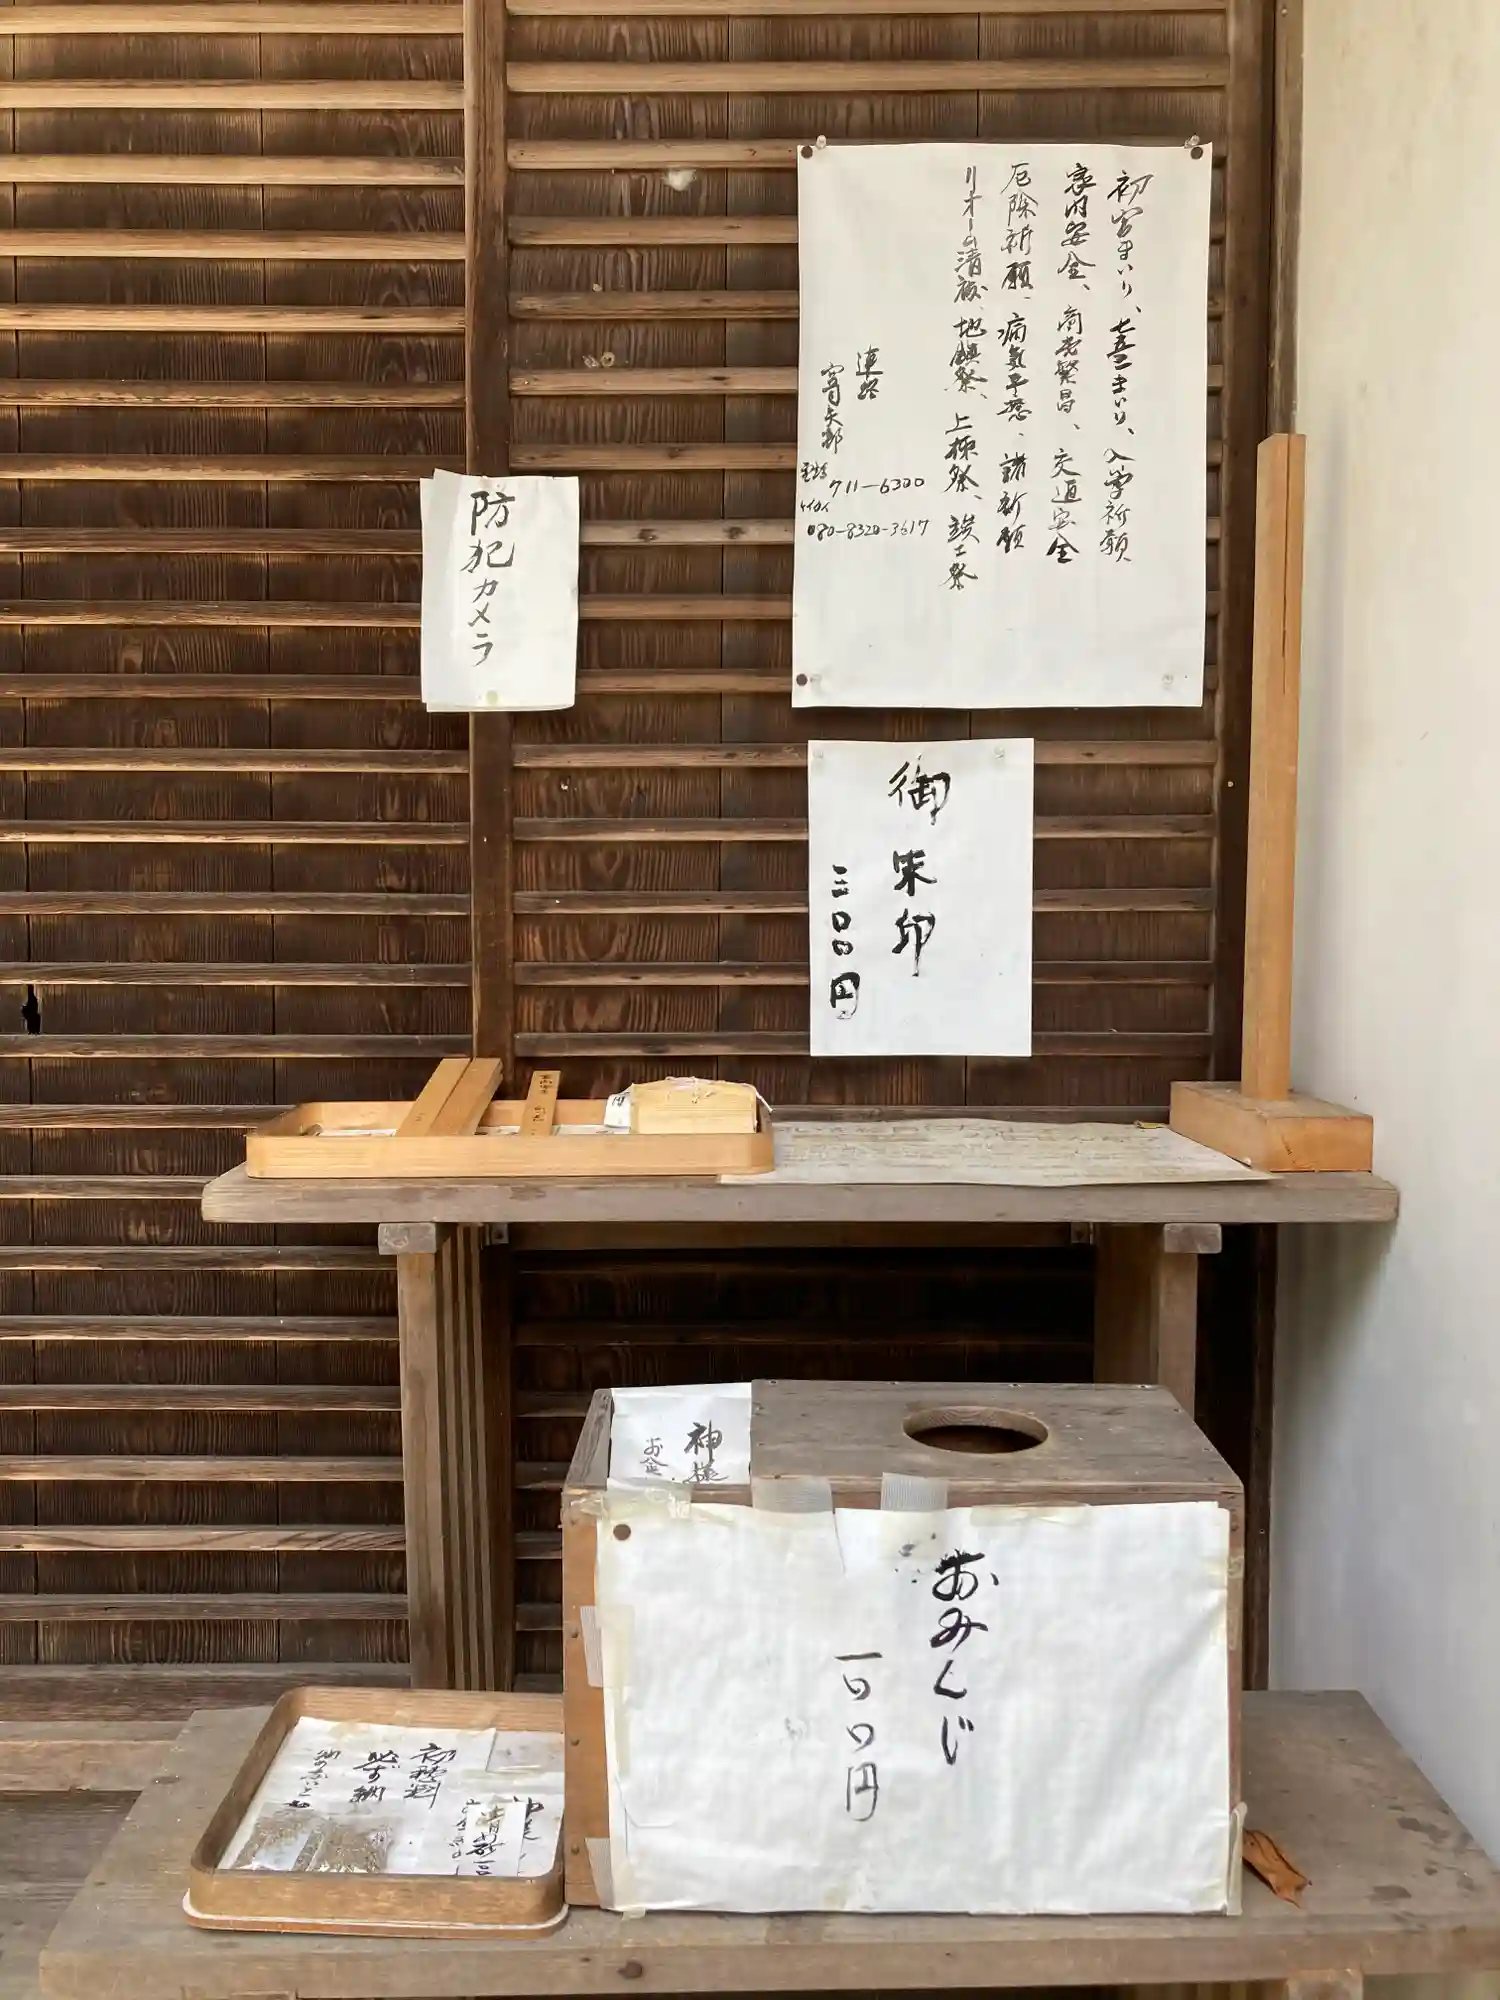 初宮まいり、七五三まいり、入学祈願
家内安全、商売繁昌、交通安全
厄除祈願、病気平癒、諸祈願
リオーム清祓、地鎮祭、上棟祭、竣工祭
連絡
宮司矢部
電話 711-6300
ケイタイ
080-8320-3617
防犯カメラ
御朱印
三〇〇円
神様
お金
おみくじ
一〇〇円
初穂料
必ず納
清砂一